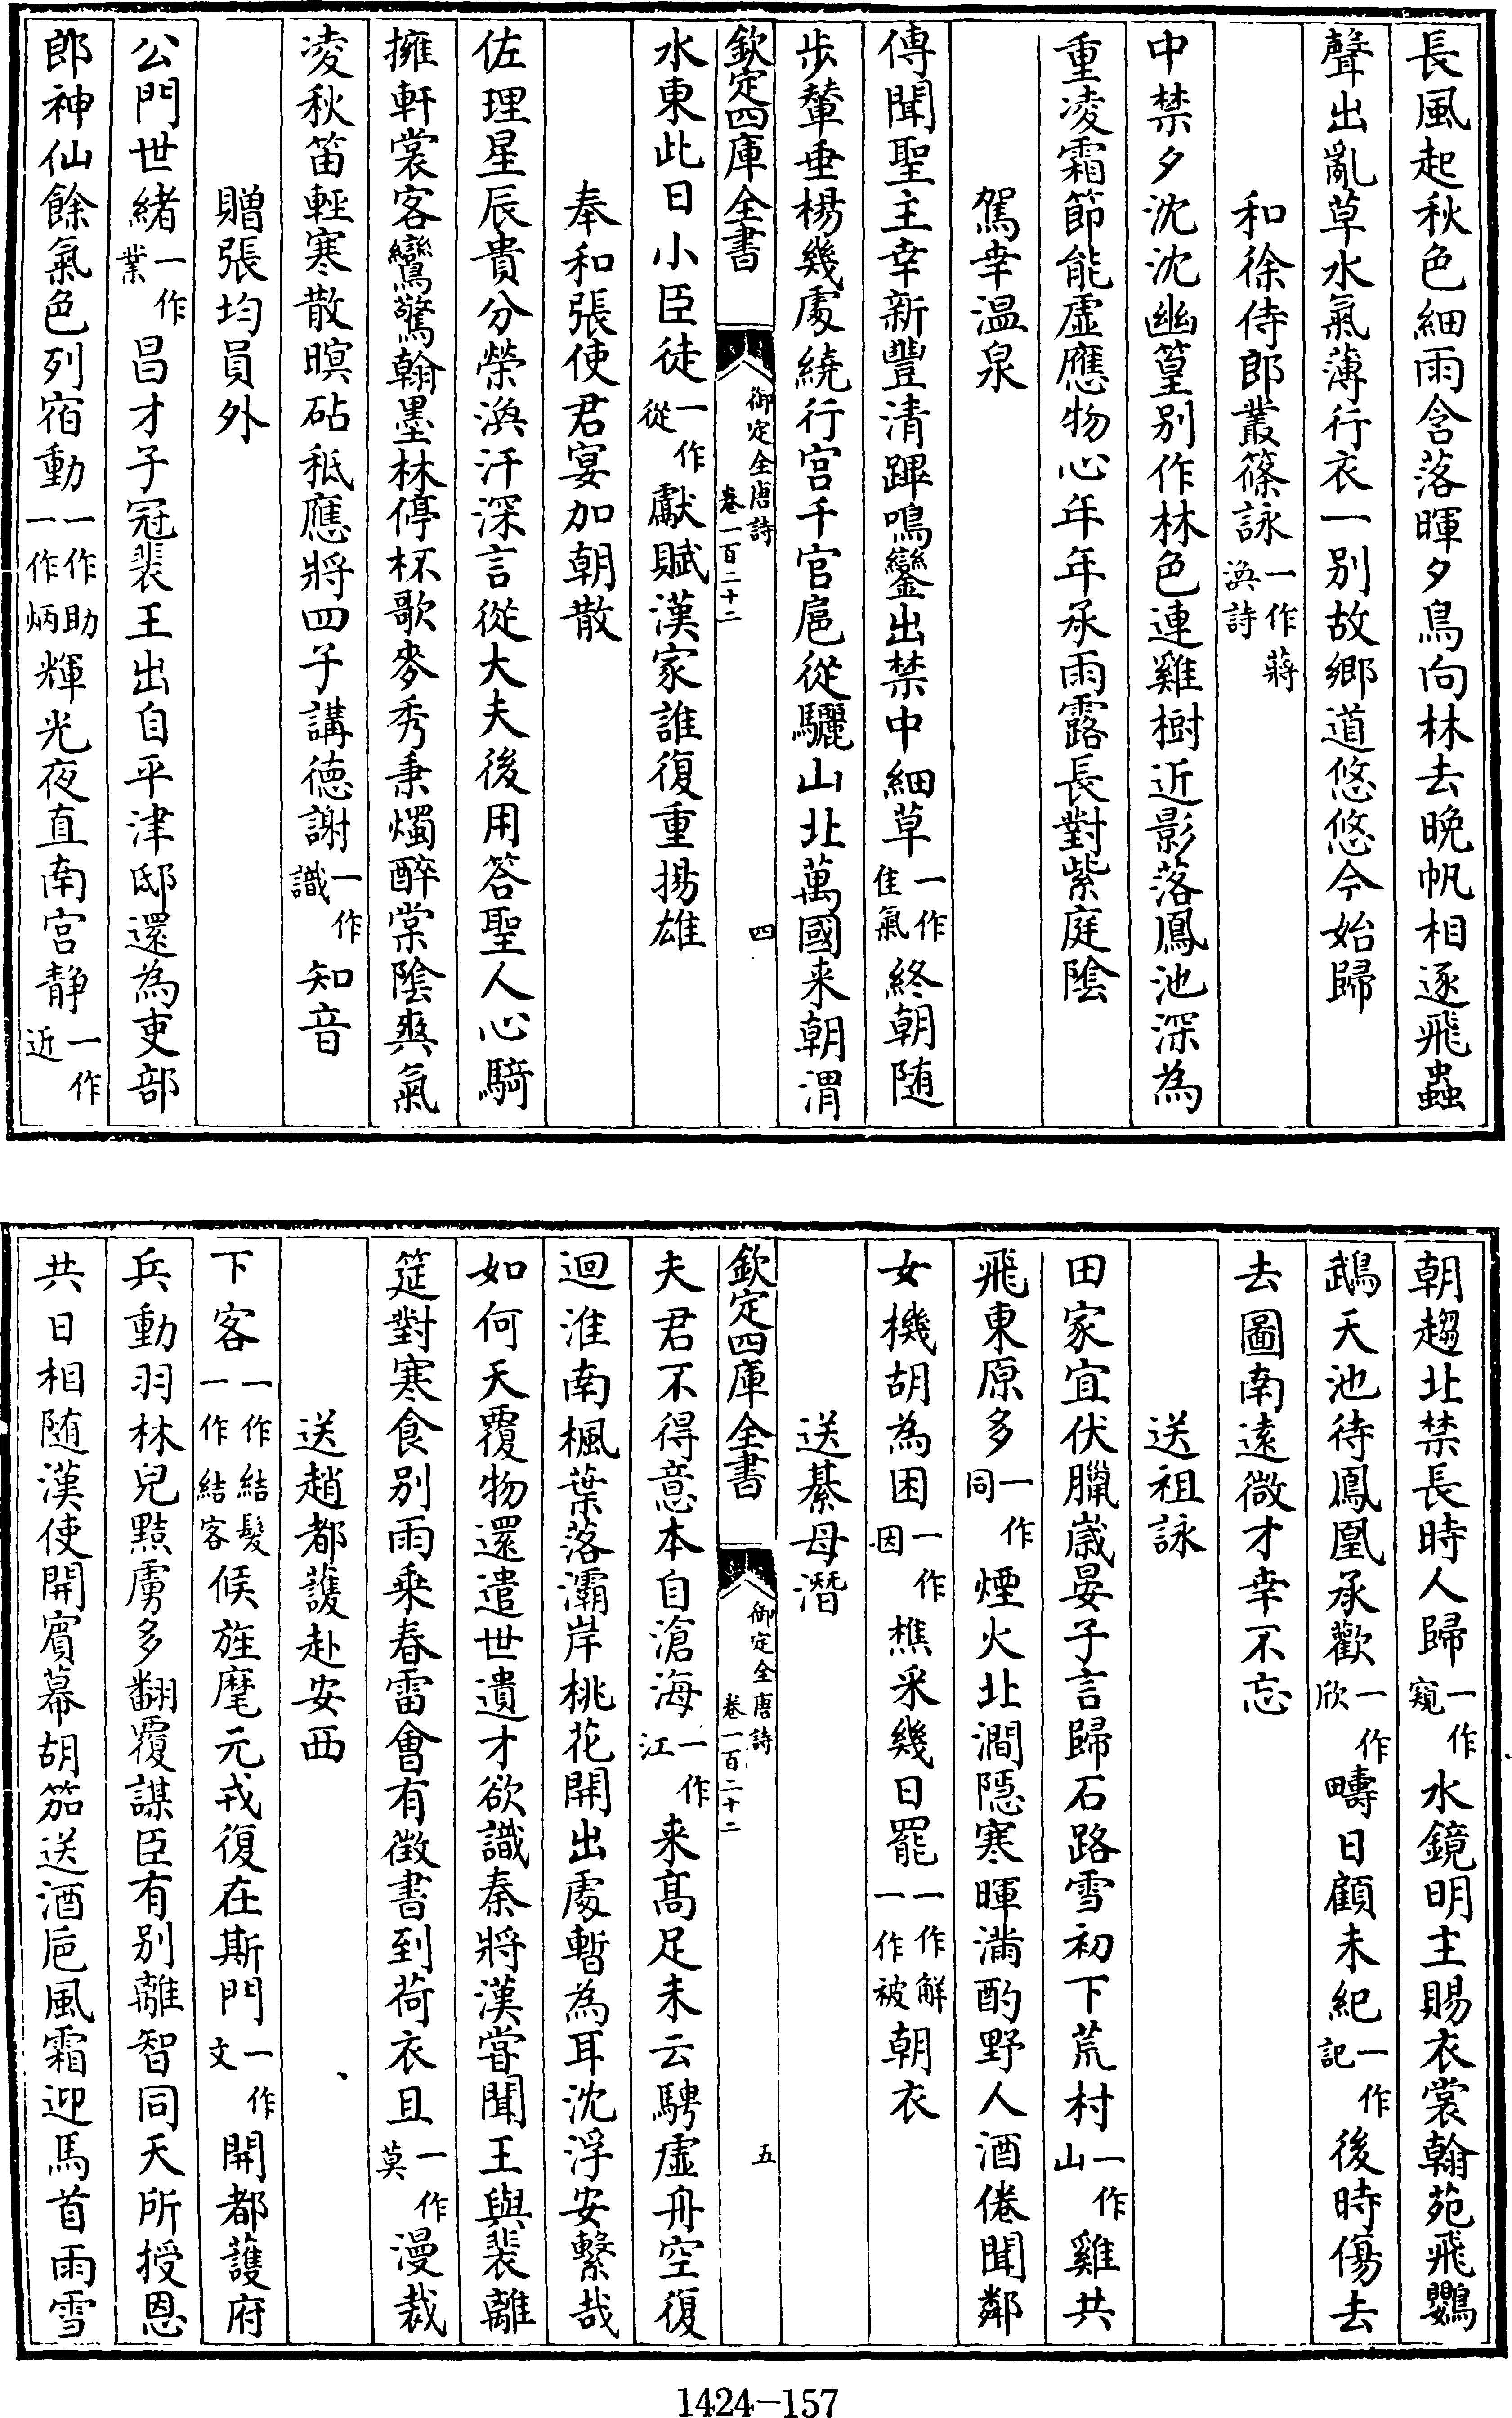 長風起秋色細雨含落暉夕鳥向林去晩帆相逐飛蟲
聲出亂草水氣薄行衣一别故鄉道悠悠今始歸
和徐侍郎叢篠詠一作蔣渙詩
中禁夕沈沈幽篁别作林色連雞樹近影落鳳池深為
重凌霜節能虛應物心年年承雨露長對紫庭陰
駕幸温泉
傳聞聖主幸新豐清蹕鳴鑾出禁中細草一作佳氣終朝随
歩輦垂楊幾處繞行宫千官扈從驪山北萬國来朝渭
欽定四庫全書
御定全唐詩
卷一百二十二
四
水東此日小臣徒一作從獻賦漢家誰復重揚雄
奉和張使君宴加朝散
佐理星辰貴分榮渙汗深言從大夫後用答聖人心騎
擁軒裳客鸞驚翰墨林停杯歌麥秀秉燭醉棠陰爽氣
凌秋笛輕寒散暝砧秪應將四子講德謝一作識知音
贈張均員外
公門世緒一作業昌才子冠裴王出自平津邸還為吏部
郎神仙餘氣色列宿動一作助一作炳輝光夜直南宫静一作近
朝趨北禁長時人歸一作窺水鏡明主賜衣裳翰苑飛鸚
鵡天池待鳳凰承歡一作欣疇日顧未紀一作記後時傷去
去圖南遠微才幸不忘
送祖詠
田家宜伏臘嵗晏子言歸石路雪初下荒村一作山雞共
飛東原多一作同煙火北澗隠寒暉滿酌野人酒倦聞鄰
女機胡為困一作因樵采幾日罷一作解一作被朝衣
送綦母潛
欽定四庫全書
御定全唐詩
卷一百二十二
五
夫君不得意本自滄海一作江来髙足未云騁虛舟空復
迴淮南楓葉落灞岸桃花開出處暫為耳沈浮安繫哉
如何天覆物還遣世遺才欲識秦將漢甞聞王與裴離
筵對寒食别雨乗春雷會有徴書到荷衣且一作莫漫裁
送趙都䕶赴安西
下客一作結髪一作結客候旌麾元戎復在斯門一作文開都䕶府
兵動羽林兒黠虜多翻覆謀臣有别離智同天所授恩
共日相随漢使開賓幕胡笳送酒巵風霜迎馬首雨雪
1424-157